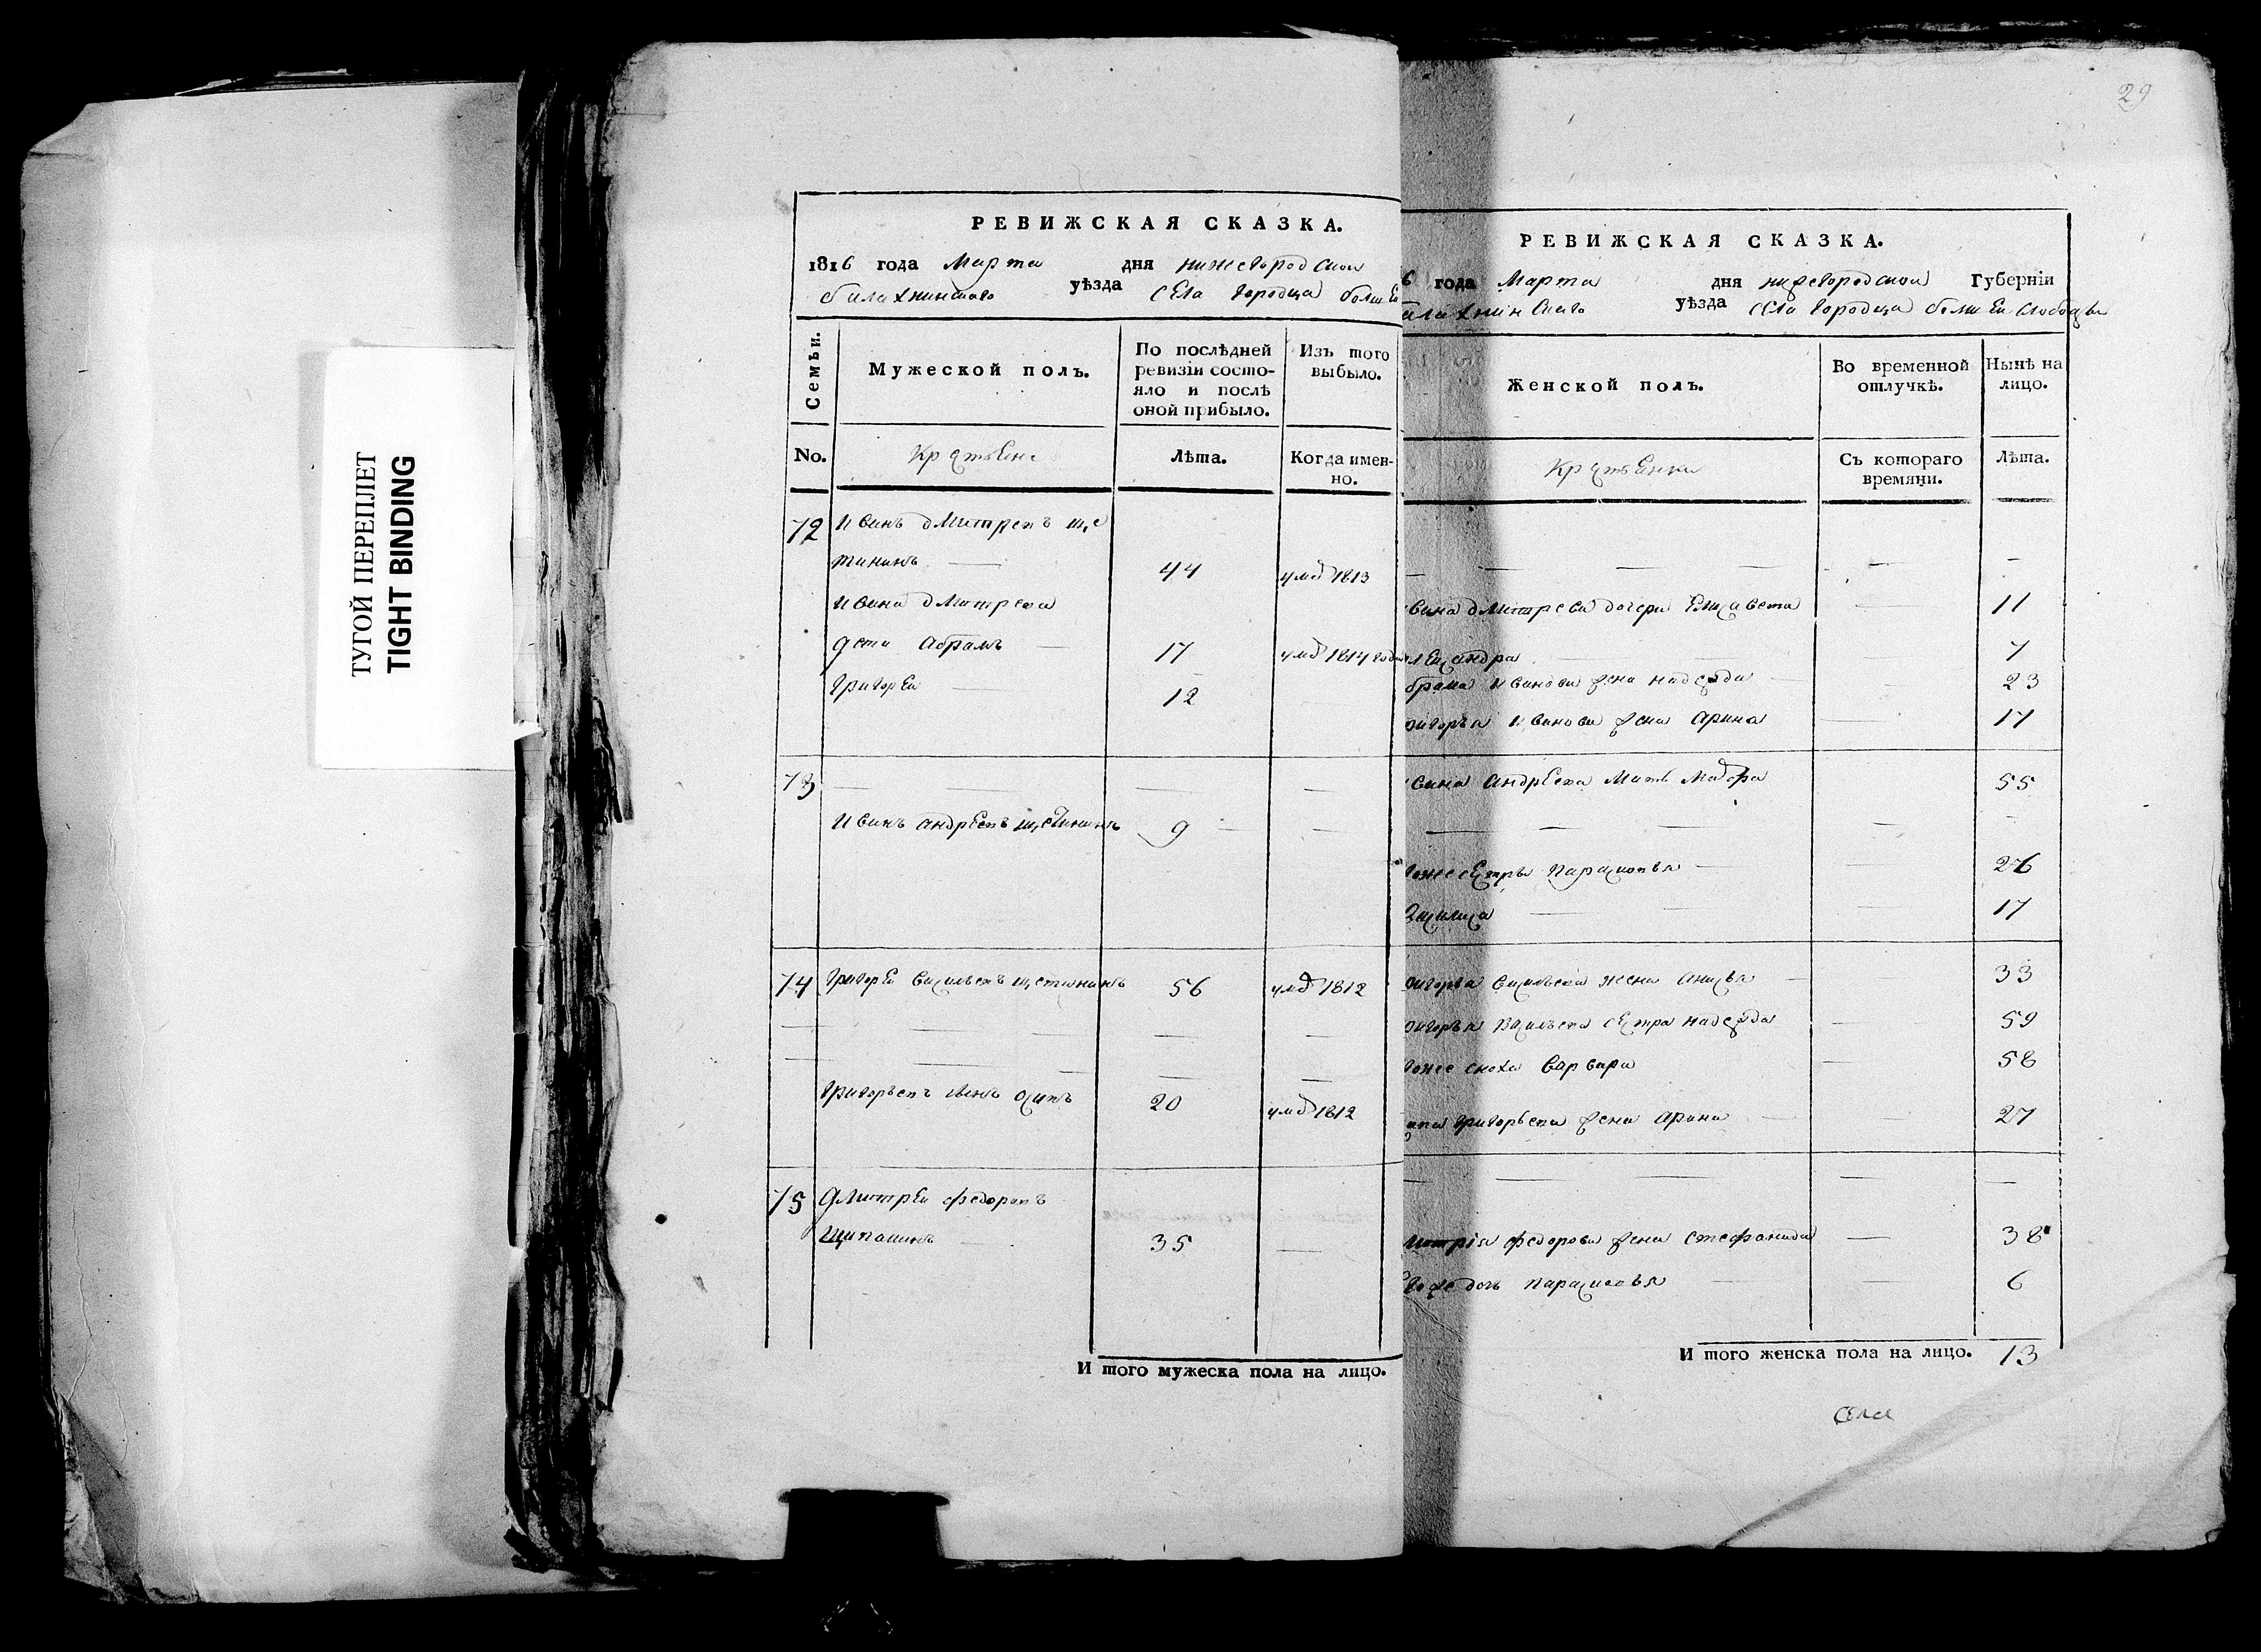 ТУГОЙ ПЕРЕПЛЕТ
TIGHT BINDING
РЕВИЖСКАЯ СКАЗКА.
1816 года Марта дня нижегородской
балахнинскаго уѣзда сЕла городца болшЕ
Семьи.
Мужеской полъ.
По послѣдней ревизіи состо-
яло и послѣ
оной прибыло.
Изъ того
выбыло.
No.
Крестьяне
Лѣта.
Когда имен-
но.
72 Иванъ дмитревъ ще
тининъ 44 умѣ 1813
Ивана дмитрева
дети Абрамъ 17 умѣ 1814 года
григореи 12
73
Иванъ андрѣевъ щетининъ 9
74 григореи василевъ щетининъ 56 умѣ 1812
григорьевъ сынъ осипъ 20 умѣ 1812
75 дмитреи федоровъ
35
И того мужеска пола на лицо.
29
РЕВИЖСКАЯ СКАЗКА.
6 года Марта дня нижегородской Губерніи
алахнинскаго уѣзда сЕла городца болшЕи слободы
Женской полъ.
Во временной
отлучкѣ.
Нынѣ на
лицо.
Крестьянки
Съ котораго
времяни.
Лѣта.
вана дмитрева дочери Елизавета 11
лександра 7
брама Иванова жена надежда 23
ригорья Иванова жена Арина 17
вана андрѣева мать 55
гоже сестры парасковья 26
17
ригорья васильева жена анисья 33
ригорья васильева сестра надежда 59
гоже сноха варвара 58
ипа григорьева жена Арина 27
митрія федорова жена стефанида 38
гоже дочь парасковья 6
И того женска пола на лицо. 13
села